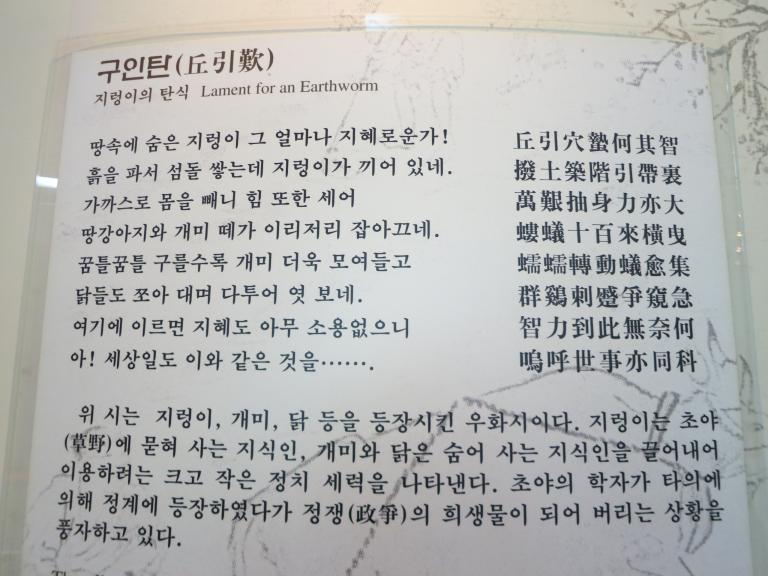 구인탄(丘引歎)
지렁이의 탄식 Lament for an Earthworm
땅속에 숨은 지렁이 그 얼마나 지혜로운가!
흙을 파서 섬돌 쌓는데 지렁이가 끼어 있네.
가까스로 몸을 빼니 힘 또한 세어
땅강아지와 개미 떼가 이리저리 잡아끄네.
꿈틀꿈틀 구를수록 개미 더욱 모여들고
닭들도 쪼아 대며 다투어 엿 보네.
여기에 이르면 지혜도 아무 소용없으니
아! 세상일도 이와 같은 것을…….
丘引穴蟄何其智
撥土築階引帶裏
萬艱抽身力亦大
螻蟻十百來橫曳
蠕蠕轉動蟻愈集
群鷄刺蹙爭窺急
智力到此無奈何
嗚呼世事亦同科
위 시는 지렁이, 개미, 닭 등을 등장시킨 우화시이다. 지렁이는 초야
(草野)에 묻혀 사는 지식인, 개미와 닭은 숨어 사는 지식인을 끌어내어
이용하려는 크고 작은 정치 세력을 나타낸다. 초야의 학자가 타의에
의해 정계에 등장하였다가 정쟁(政爭)의 희생물이 되어 버리는 상황을
풍자하고 있다.